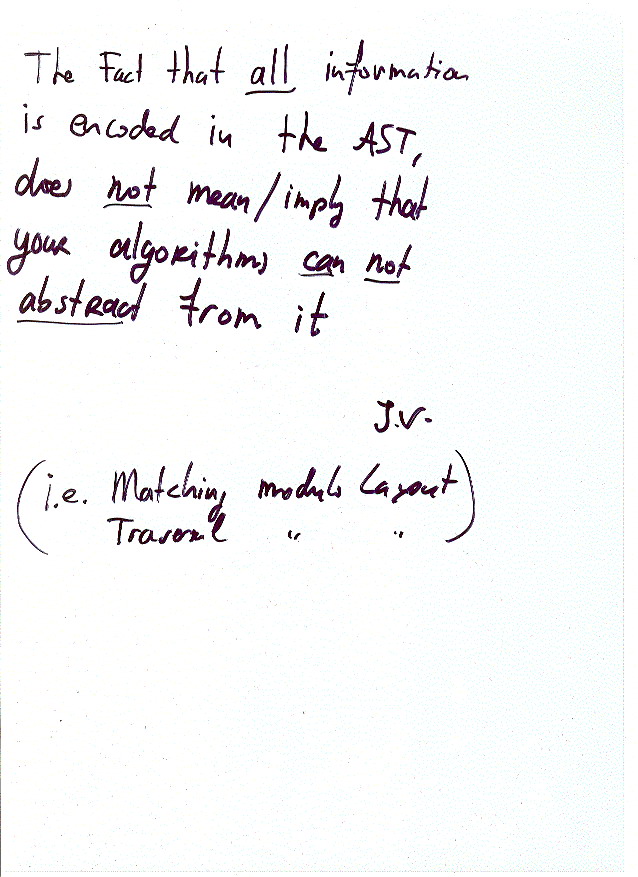 The Fact that all information
is encoded in the AST,
does not mean/imply that
your algorithms can not
abstract from it
J.V.
(i.e. Matching modulo Layout
Traversal " " )